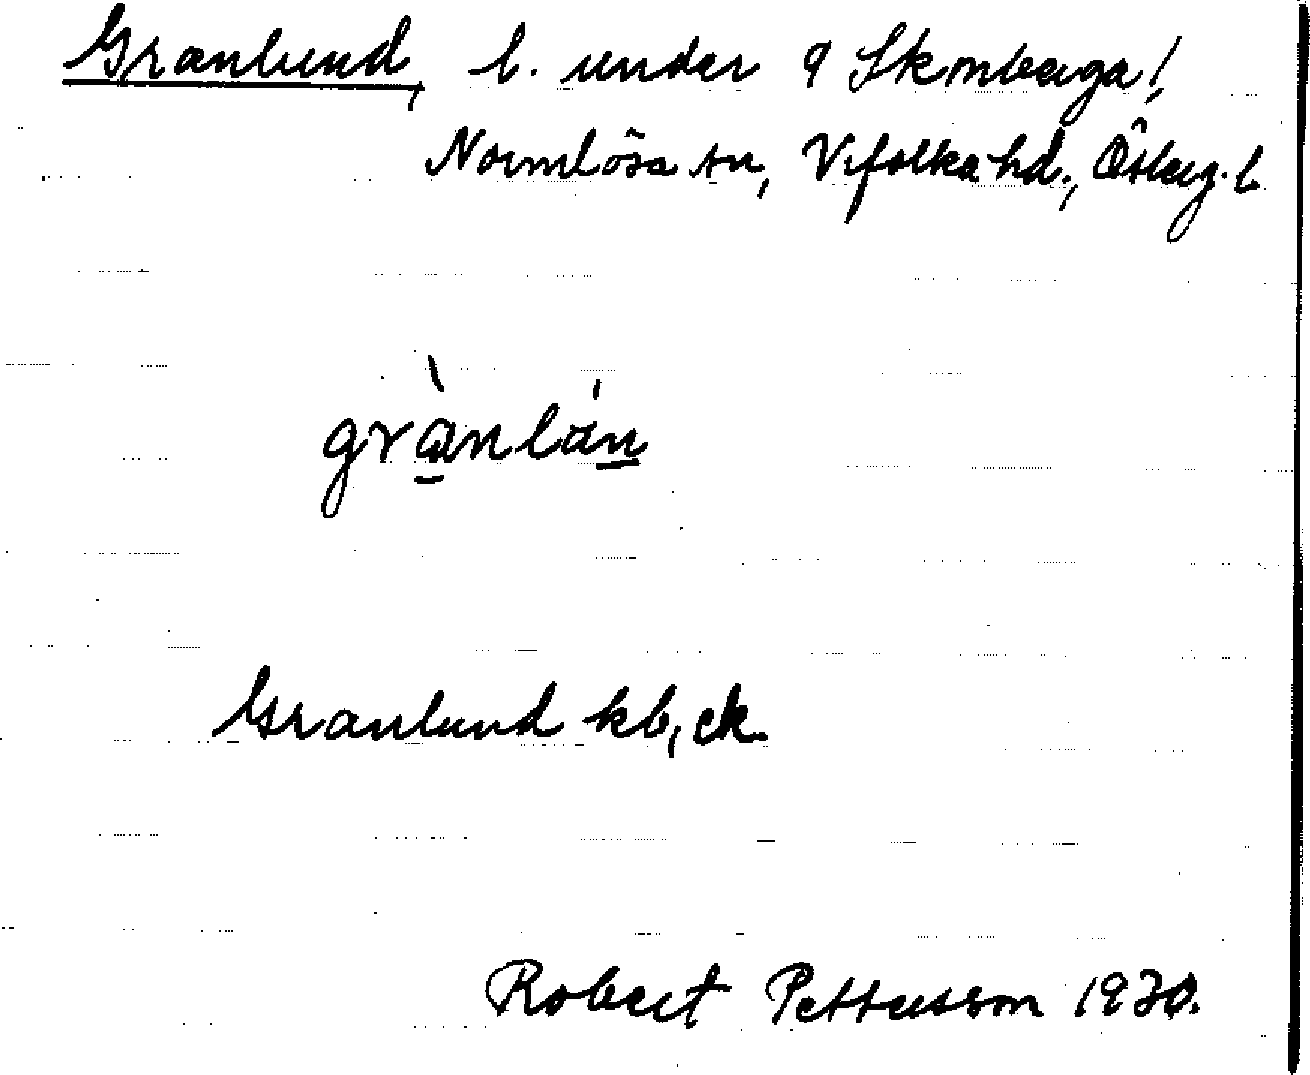 Granlund, l. under 9 Skmberga!,
Normlösa sn, Vifolka hd., Österg. l.
grànlán
Granlund kb, ek.
Robert Pettersson 1930.